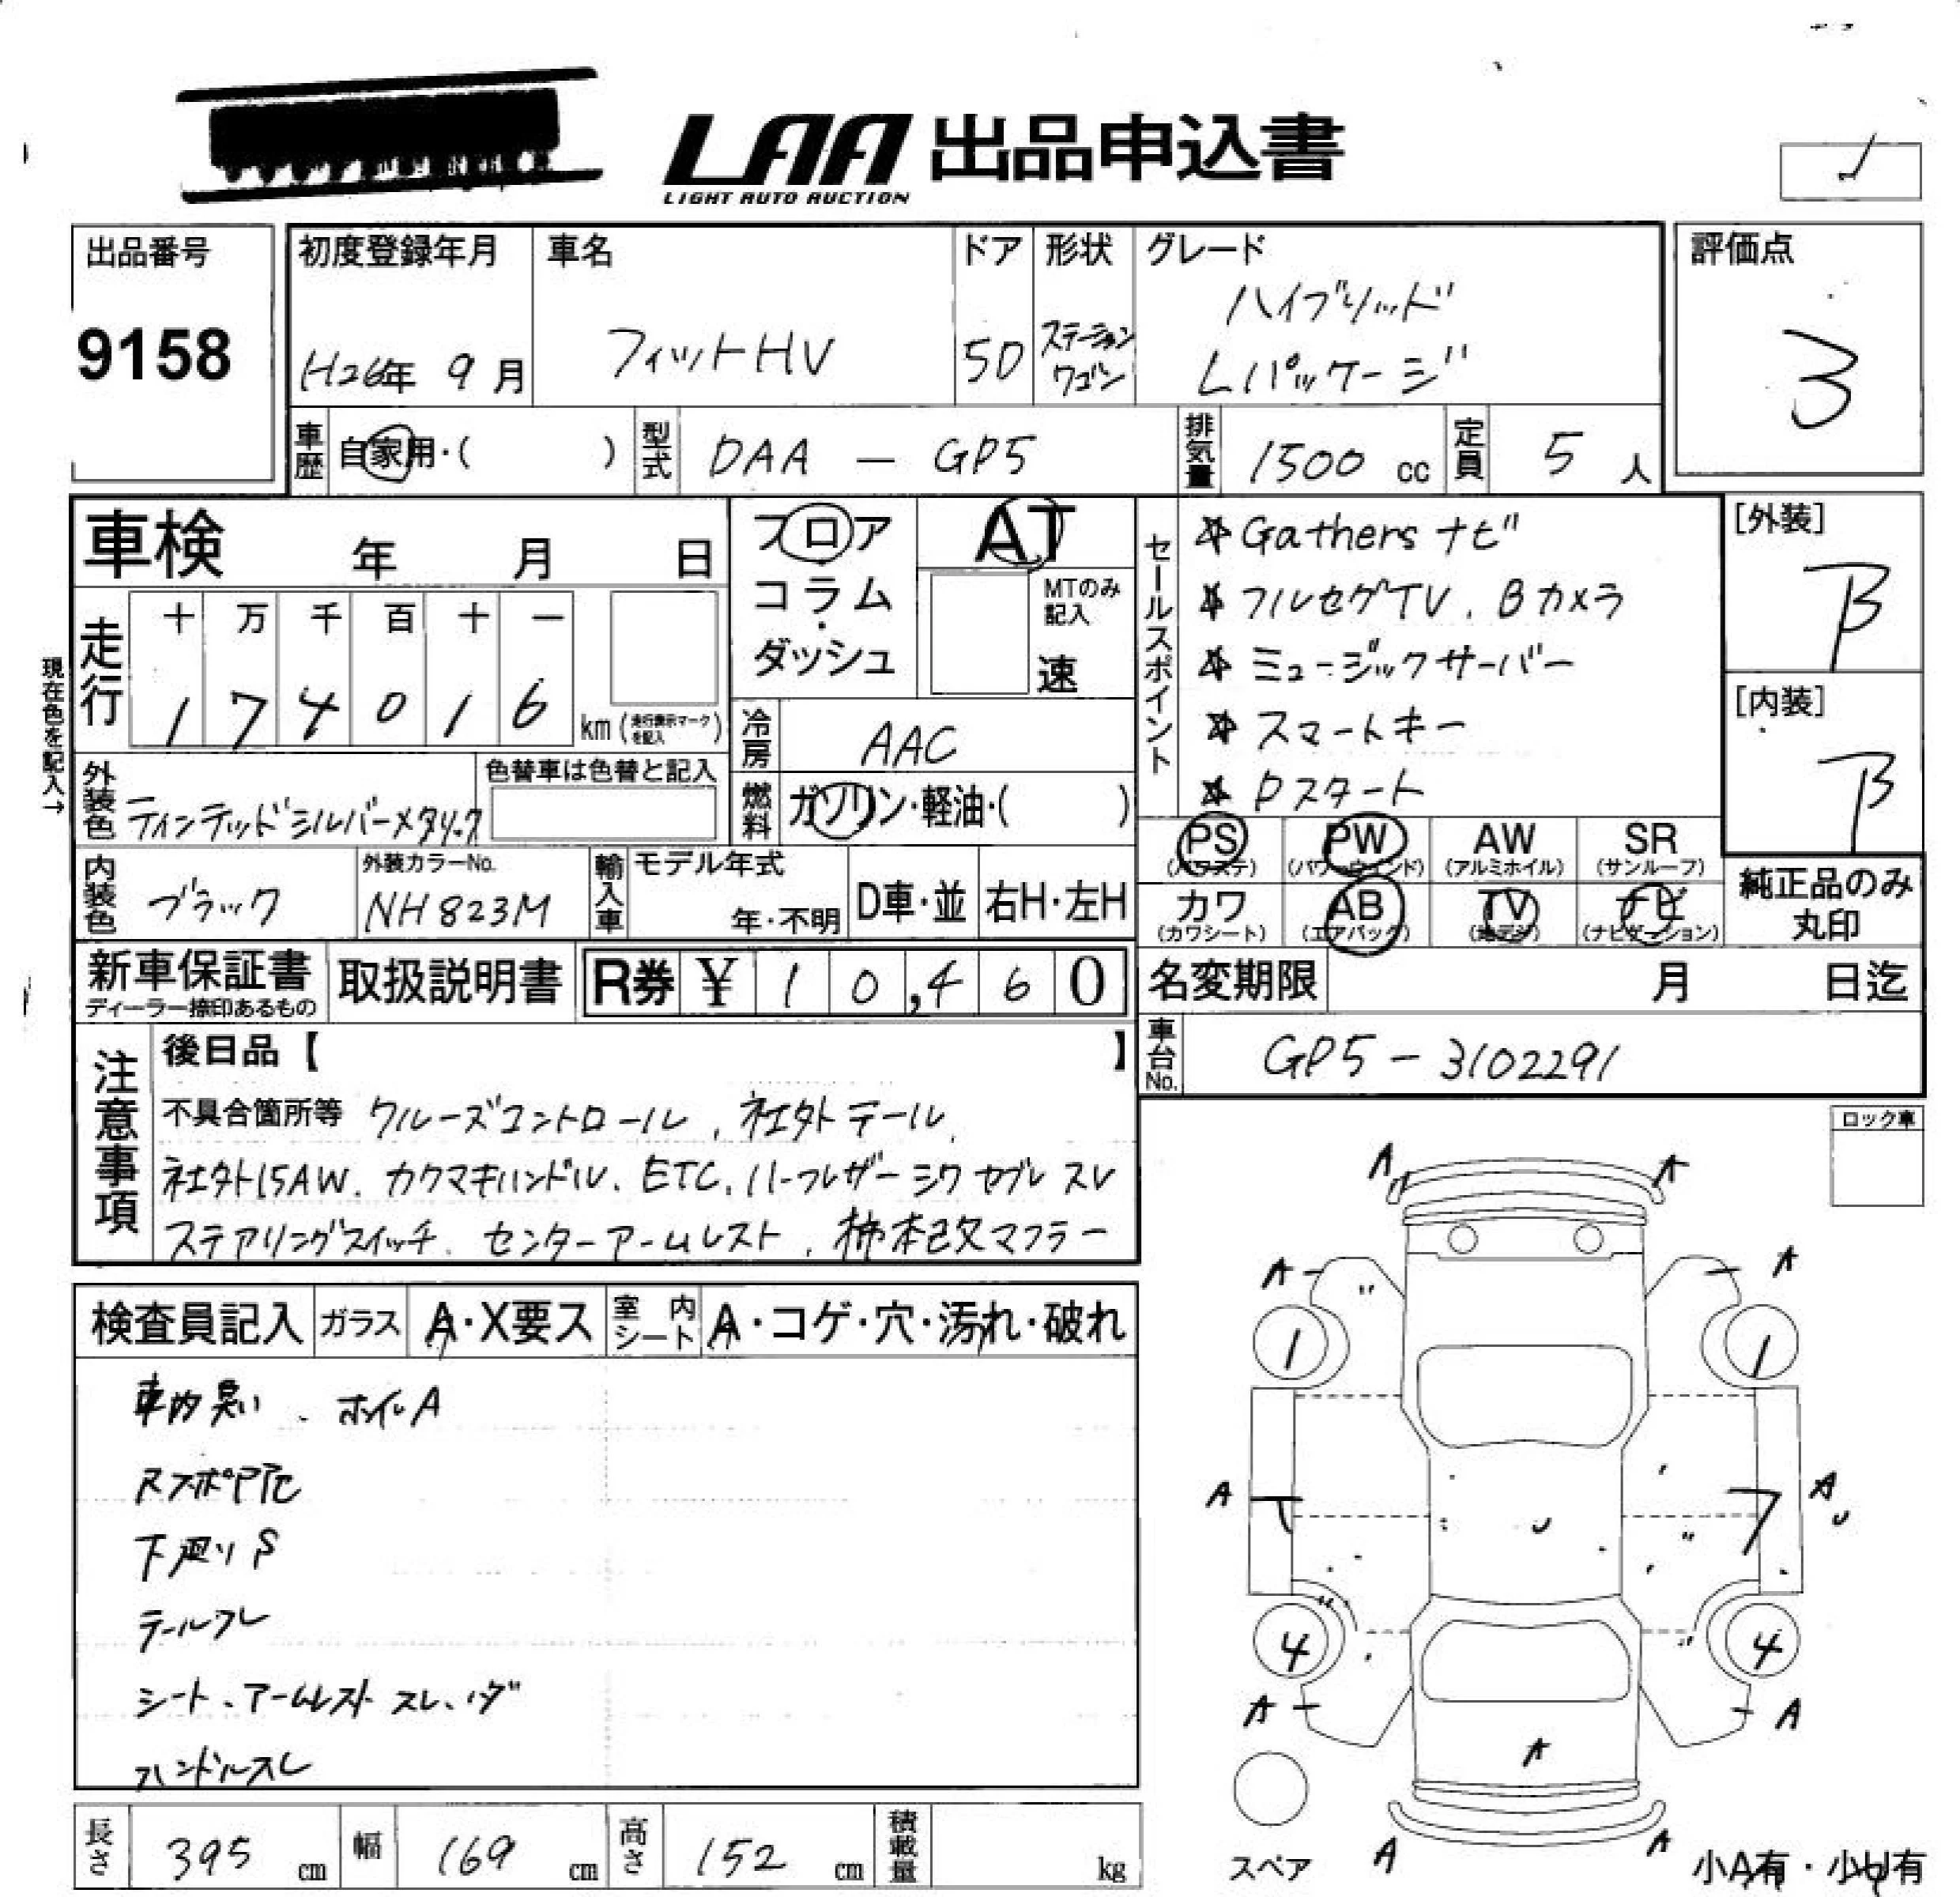 LAA 出品申込書
LIGHT AUTO AUCTION
出品番号
9158
初度登録年月
H26年 9月
車名
フィットHV
ドア
5D
形状
ステーション
ワゴン
グレード
ハイブリッド
Lパッケージ
評価点
3
車歴 自家用・( )
型式 DAA - GP5
排気量 1500 cc
定員 5 人
車検 年 月 日
現在色を記入→
走行
十 万 千 百 十 一
1 7 4 0 1 6 km (走行表示マークを記入)
フロア
コラム
ダッシュ
AT
MTのみ記入
速
冷房 AAC
燃料 ガソリン・軽油・( )
セールスポイント
☆ Gathers ナビ
☆ フルセグTV、Bカメラ
☆ ミュージックサーバー
☆ スマートキー
☆ Pスタート
[外装]
B
[内装]
B
外装色 ティンテッドシルバーメタリック
色替車は色替と記入
内装色 ブラック
外装カラーNo.
NH823M
輸入車
モデル年式
年・不明
D車・並
右H・左H
PS (パワステ)
PW (パワーウインド)
AW (アルミホイル)
SR (サンルーフ)
カワ (カワシート)
AB (エアバック)
TV (地デジ)
ナビ (ナビゲーション)
純正品のみ
丸印
新車保証書
ディーラー捺印あるもの
取扱説明書
R券 ¥ 1 0,4 6 0
名変期限 月 日迄
車台No. GP5-3102291
注意事項
後日品【 】
不具合箇所等 クルーズコントロール、社外テール、
社外15AW、カワマキハンドル、ETC、ハーフレザーシワセブレスレ
ステアリングスイッチ、センターアームレスト、柿本改マフラー
ロック車
検査員記入
ガラス A・X要ス
室内シート A・コゲ・穴・汚れ・破れ
車内臭い、ホイルA
下廻りS
テールスレ
シート、アームレストスレ、ハゲ
ハンドルスレ
A A
A A
1 1
A A
4 4
A A
A
A A
スペア
小A有・小U有
長さ 395 cm
幅 169 cm
高さ 152 cm
積載量 kg